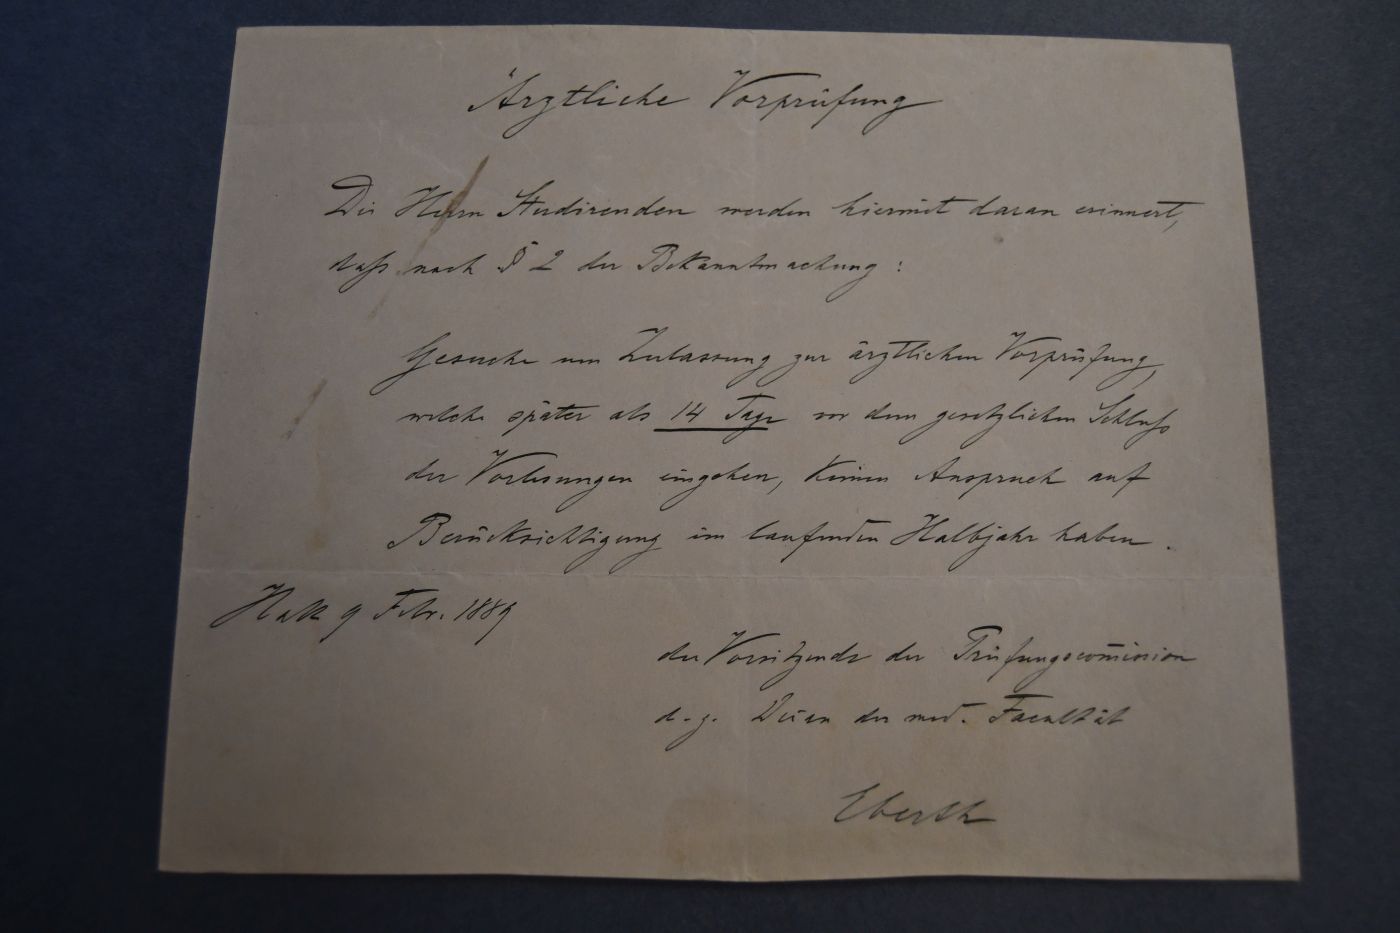 Ärztliche Vorprüfung
Die Herrn Studirenden werden hiermit daran erinnert,
daß nach § 2 der Bekanntmachung:
Gesuche um Zulassung zur ärztlichen Vorprüfung,
welche später als 14 Tage vor dem gesetzlichen Schluß
der Vorlesungen eingehen, keinen Anspruch auf
Berücksichtigung im laufenden Halbjahr haben.
Halle 9 Febr. 1889
der Vorsitzende der Prüfungscom̅ission
d. z. Decan der med. Facultät
Eberth